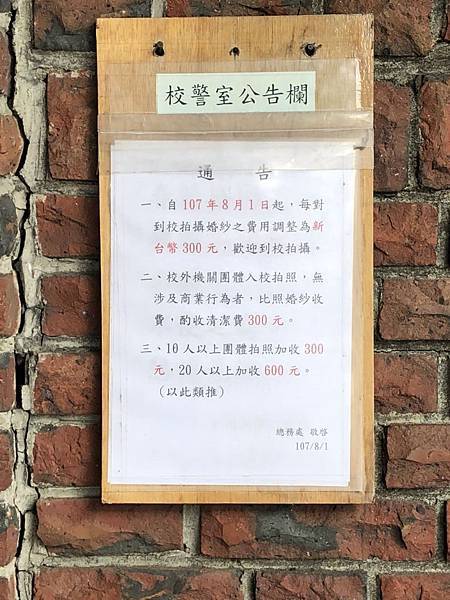 校警室公告欄
通 告
一、自 107 年 8 月 1 日起，每對
到校拍攝婚紗之費用調整為新
台幣 300 元，歡迎到校拍攝。
二、校外機關團體入校拍照，無
涉及商業行為者，比照婚紗收
費，酌收清潔費 300 元。
三、10 人以上團體拍照加收 300
元，20 人以上加收 600 元。
（以此類推）
總務處 敬啓
107/8/1